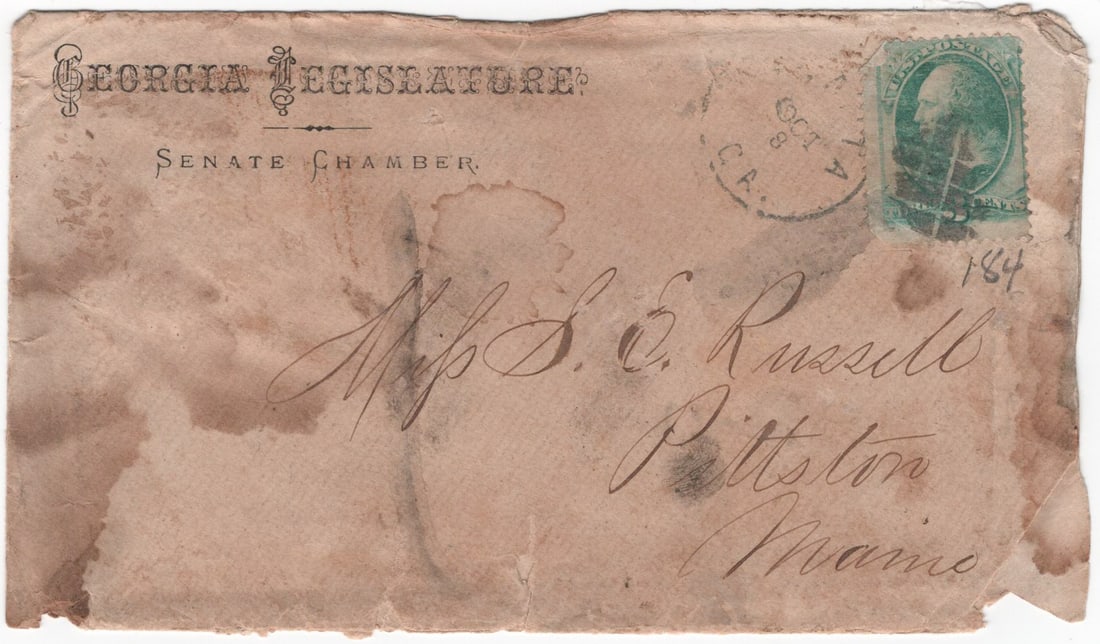 GEORGIA LEGISLATURE,
SENATE CHAMBER.
TA
GA.
OCT
8
U.S. POSTAGE
184
Miss S. E. Russell
Pittston
Maine